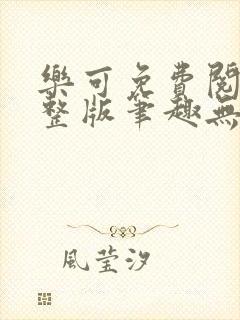 樂可免費閱
整版筆趣無
風莹汐